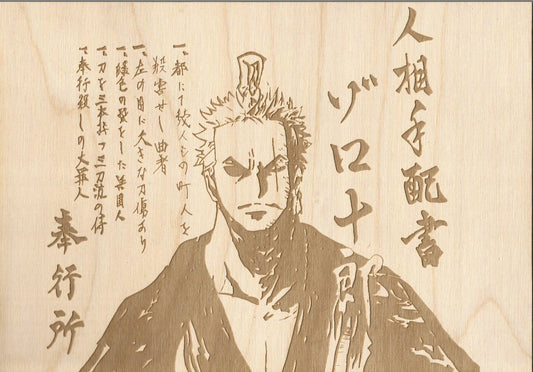 人相手配書
ゾロ十郎
一、都にて狡人もの町人を
殺害せし曲者
一、左の目に大きな刀傷あり
一、緑色の髪をした異国人
一、刀を三本持つ三刀流の侍
一、奉行殺しの大罪人
奉行所